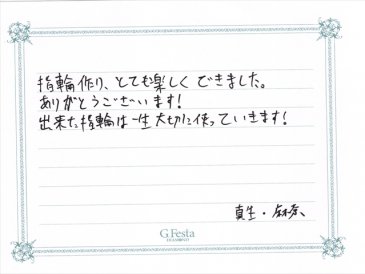 指輪作り、とても楽しくできました。
ありがとうございます!
出来た指輪は一生大切に使っていきます!
真生・麻奈
G.Festa
DIAMOND